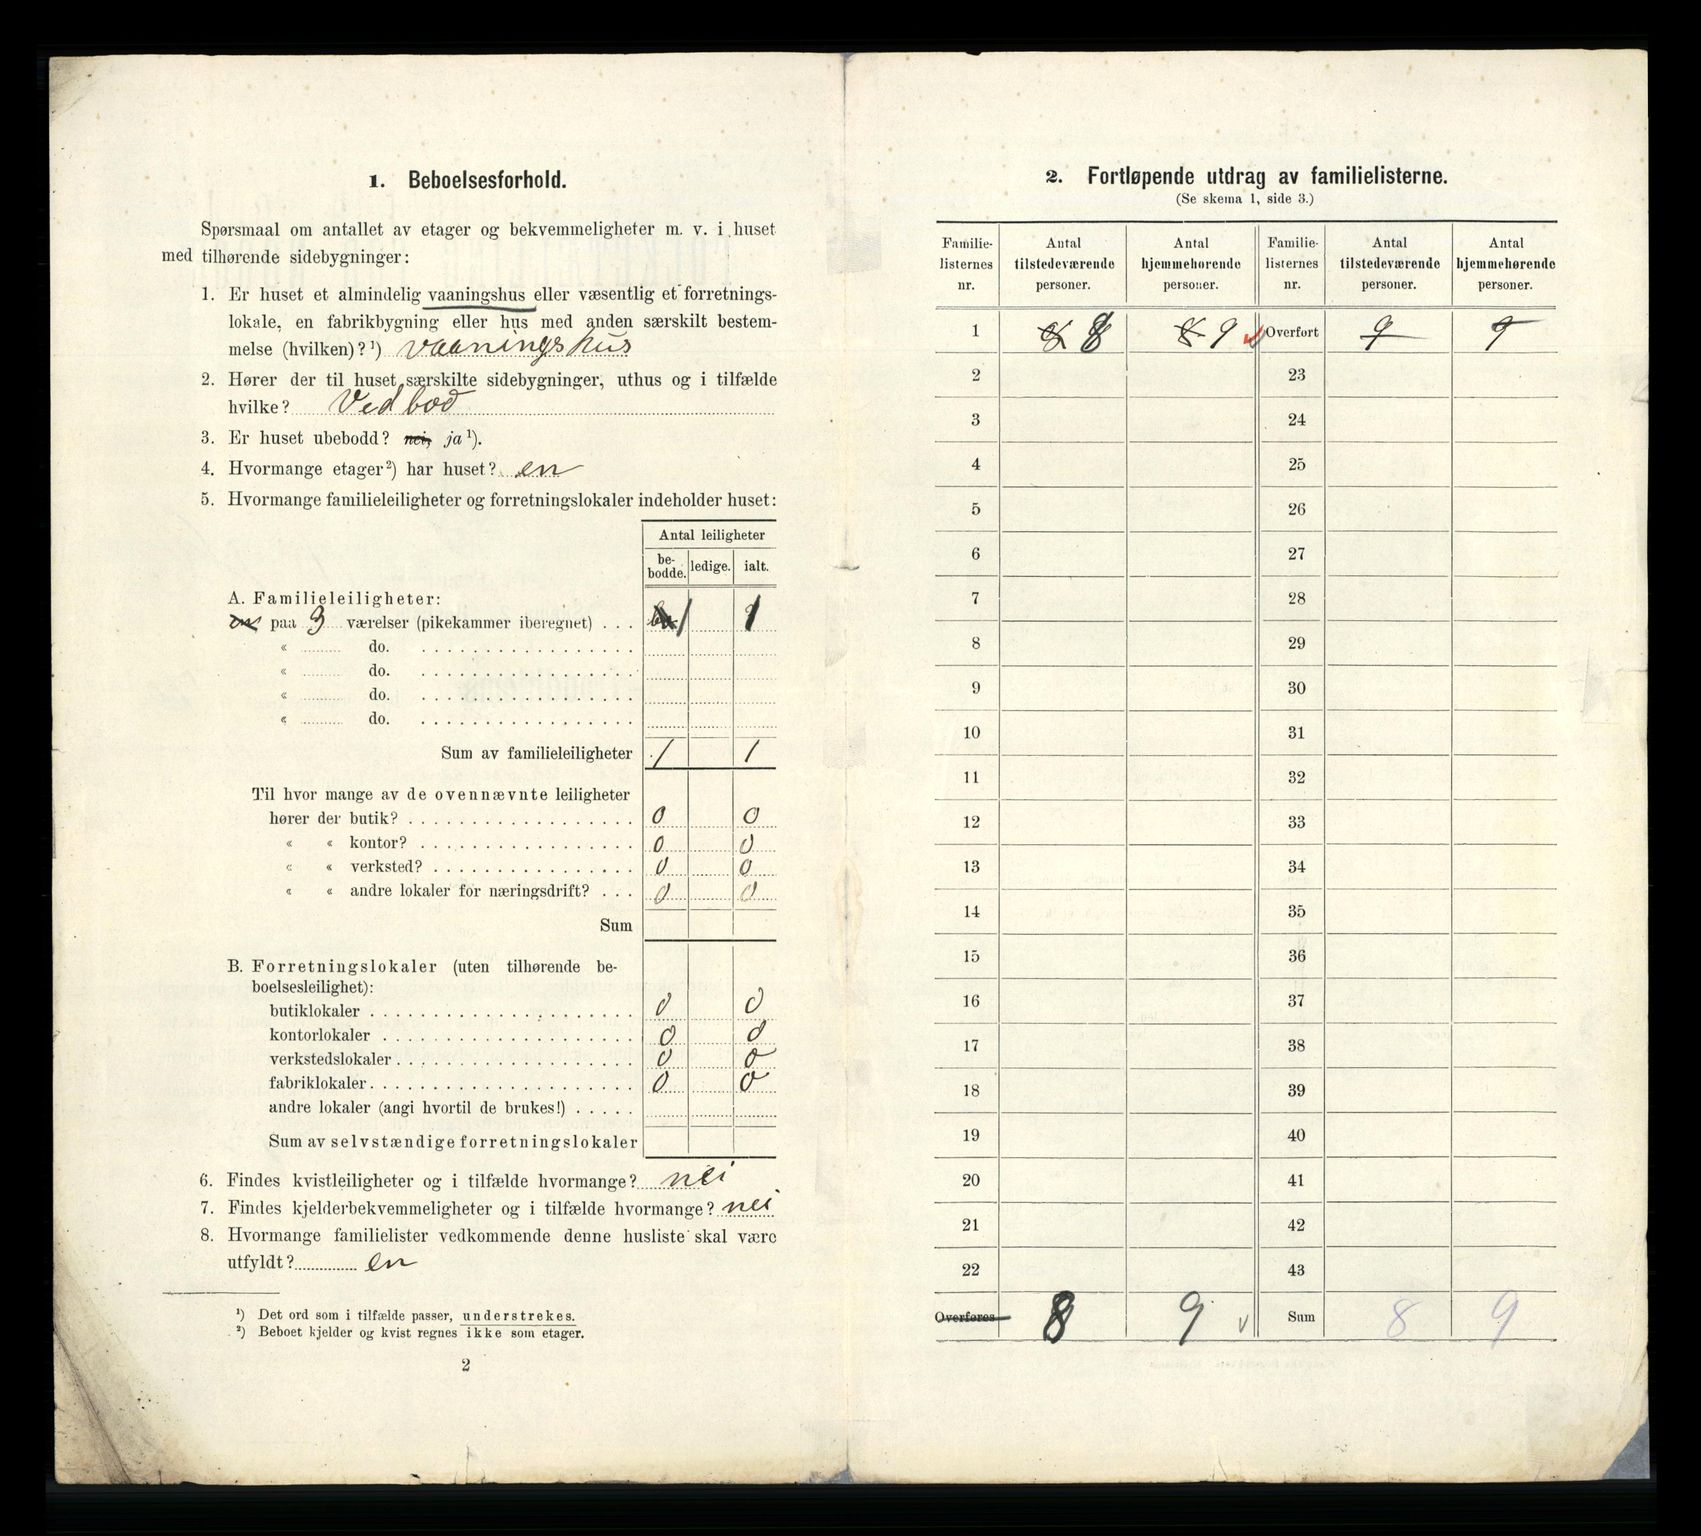 1. Beboelsesforhold.
Spørsmaal om antallet av etager og bekvemmeligheter m. v. i huset
med tilhørende sidebygninger:
1. Er huset et almindelig vaaningshus eller væsentlig et forretnings-
lokale, en fabrikbygning eller hus med anden særskilt bestem-
melse (hvilken)? ¹) vaaningshus
2. Hører der til huset særskilte sidebygninger, uthus og i tilfælde
hvilke? Vedbod
3. Er huset ubebodd? nei, ja ¹).
4. Hvormange etager ²) har huset? en
5. Hvormange familieleiligheter og forretningslokaler indeholder huset:
Antal leiligheter
be-bodde. ledige. ialt.
A. Familieleiligheter:
en paa 3 værelser (pikekammer iberegnet) . . . 1 1
« do.
« do.
« do.
« do.
Sum av familieleiligheter 1 1
Til hvor mange av de ovennævnte leiligheter
hører der butik? 0 0
« « kontor? 0 0
« « verksted? 0 0
« « andre lokaler for næringsdrift? . . . 0 0
Sum
B. Forretningslokaler (uten tilhørende be-
boelsesleilighet):
butiklokaler 0 0
kontorlokaler 0 0
verkstedslokaler 0 0
fabriklokaler 0 0
andre lokaler (angi hvortil de brukes!) . . . . .
Sum av selvstændige forretningslokaler
6. Findes kvistleiligheter og i tilfælde hvormange? nei
7. Findes kjelderbekvemmeligheter og i tilfælde hvormange? nei
8. Hvormange familielister vedkommende denne husliste skal være
utfyldt? en
¹) Det ord som i tilfælde passer, understrekes.
²) Beboet kjelder og kvist regnes ikke som etager.
2
2. Fortløpende utdrag av familielisterne.
(Se skema 1, side 3.)
Familie-listernes nr. Antal tilstedeværende personer. Antal hjemmehørende personer. Familie-listernes nr. Antal tilstedeværende personer. Antal hjemmehørende personer.
1 8 8 8 9 Overført 9 9
2 23
3 24
4 25
5 26
6 27
7 28
8 29
9 30
10 31
11 32
12 33
13 34
14 35
15 36
16 37
17 38
18 39
19 40
20 41
21 42
22 43
Overføres 8 9 Sum 8 9